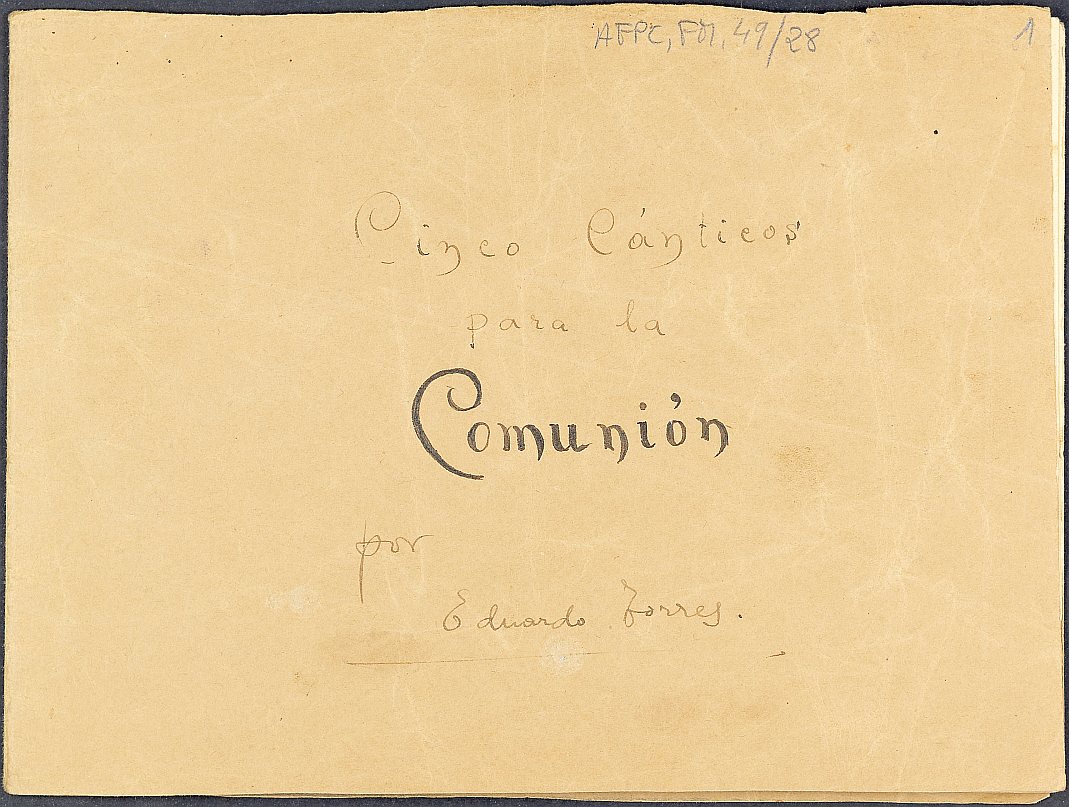 AFPC, FM, 49/28
1
Cinco Cánticos
para la
Comunión
por
Eduardo Torres.